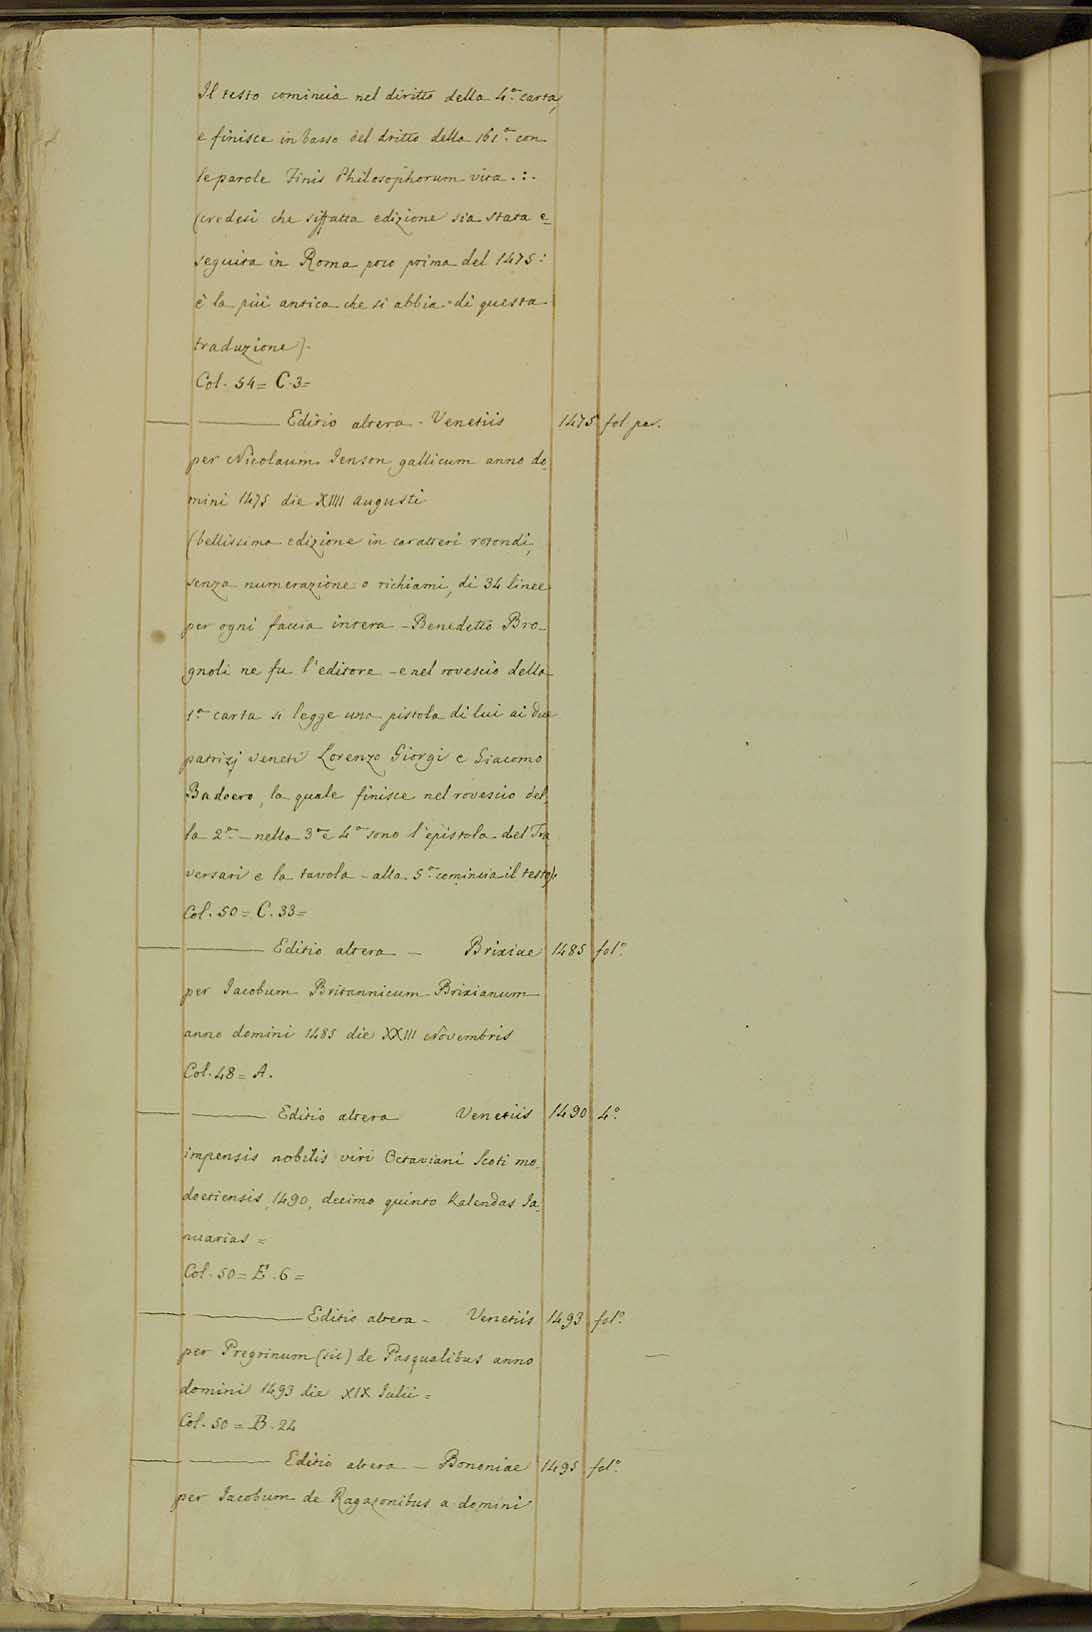 Il testo comincia nel diritto della 4.a carta,
e finisce in basso del dritto della 161.a con
le parole Finis Philosophorum vita .:.
(credesi che siffatta edizione sia stata e=
seguita in Roma poco prima del 1475:
è la più antica che si abbia di questa
traduzione).
Col. 54= C.3=
——— Editio altera - Venetiis 1475 fol par.
per Nicolaum Jenson gallicum anno do=
mini 1475 die XIIII augusti
(bellissima edizione in caratteri rotondi,
senza numerazione o richiami, di 34 linee
per ogni faccia intera - Benedetto Bro=
gnoli ne fu l'editore - e nel rovescio della
1.a carta si legge una pistola di lui ai due
patrizj veneti Lorenzo Giorgi e Giacomo
Badoero, la quale finisce nel rovescio del=
la 2.a - nella 3.a e 4.a sono l'epistola del Tra
versari e la tavola - alla 5.a comincia il testo).
Col. 50= C. 33=
——— Editio altera — Brixiae 1485 fol.o
per Jacobum Britannicum Brixianum
anno domini 1485 die XXIII Novembris
Col. 48= A.
——— Editio altera Venetiis 1490 4.o
impensis nobilis viri Octaviani Scoti mo=
doetiensis, 1490, decimo quinto Kalendas Ja=
nuarias =
Col. 50= E. 6=
——— Editio altera - Venetiis 1493 fol.o
per Pregrinum (sic) de Pasqualibus anno
domini 1493 die XIX Julii =
Col. 50= B. 24
——— Editio altera — Bononiae 1495 fol.o
per Jacobum de Ragazonibus a. domini